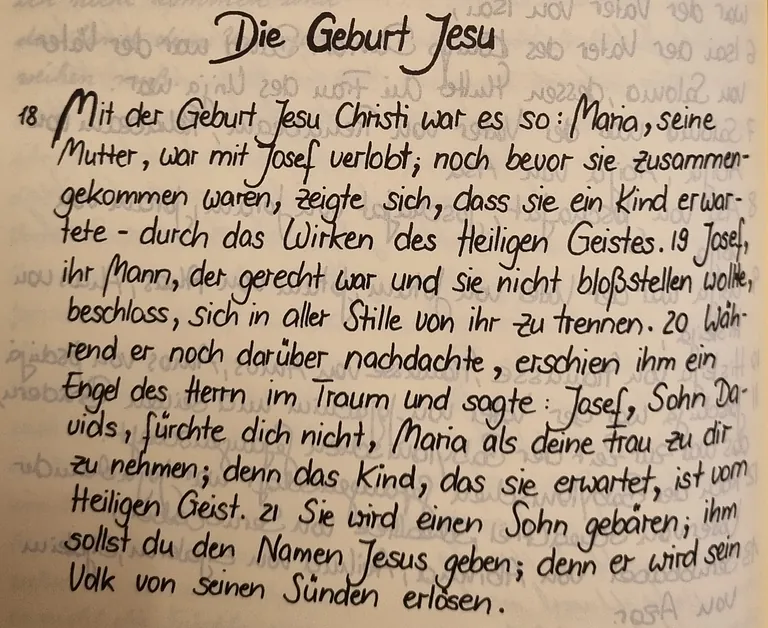 Die Geburt Jesu
18 Mit der Geburt Jesu Christi war es so: Maria, seine
Mutter, war mit Josef verlobt; noch bevor sie zusammen-
gekommen waren, zeigte sich, dass sie ein Kind erwar-
tete - durch das Wirken des Heiligen Geistes. 19 Josef,
ihr Mann, der gerecht war und sie nicht bloßstellen wollte,
beschloss, sich in aller Stille von ihr zu trennen. 20 Wäh-
rend er noch darüber nachdachte, erschien ihm ein
Engel des Herrn im Traum und sagte: Josef, Sohn Da-
vids, fürchte dich nicht, Maria als deine Frau zu dir
zu nehmen; denn das Kind, das sie erwartet, ist vom
Heiligen Geist. 21 Sie wird einen Sohn gebären; ihm
sollst du den Namen Jesus geben; denn er wird sein
Volk von seinen Sünden erlösen.